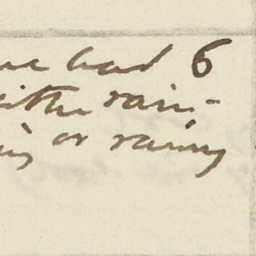 we had 6
either rain-
ing or rainy